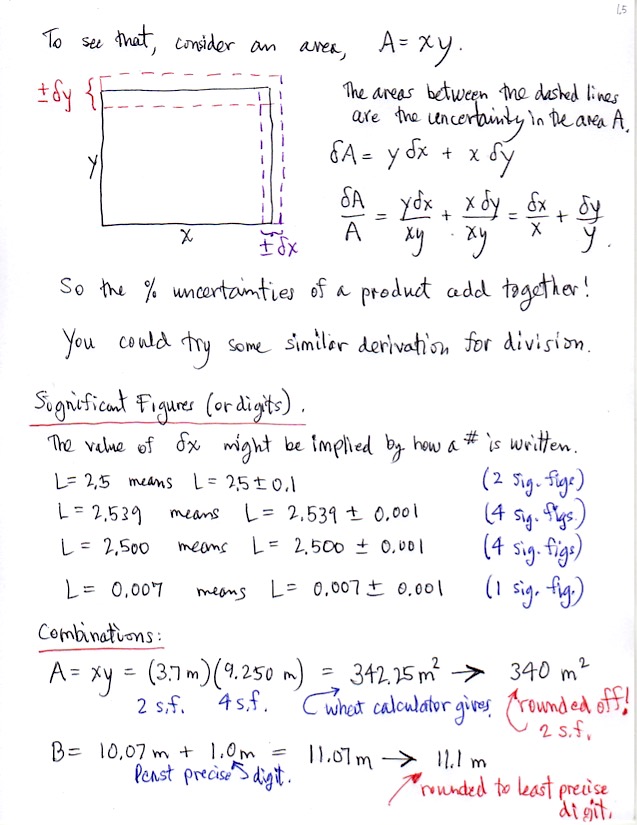 1.5
To see that, consider an area, A = xy.
±δy {
y
x
± δx
The areas between the dashed lines
are the uncertainty in the area A.
δA = y δx + x δy
δA/A = yδx/xy + x δy/xy = δx/x + δy/y.
So the % uncertainties of a product add together!
You could try some similar derivation for division.
Significant Figures (or digits).
The value of δx might be implied by how a # is written.
L = 2.5 means L = 2.5 ± 0.1 (2 sig. figs)
L = 2.539 means L = 2.539 ± 0.001 (4 sig. figs.)
L = 2.500 means L = 2.500 ± 0.001 (4 sig. figs)
L = 0.007 means L = 0.007 ± 0.001 (1 sig. fig.)
Combinations:
A = xy = (3.7 m)(9.250 m) = 342.25 m² → 340 m²
2 s.f. 4 s.f. what calculator gives. rounded off!
2 s.f.
B = 10.07 m + 1.0 m = 11.07 m → 11.1 m
least precise digit.
rounded to least precise
digit.